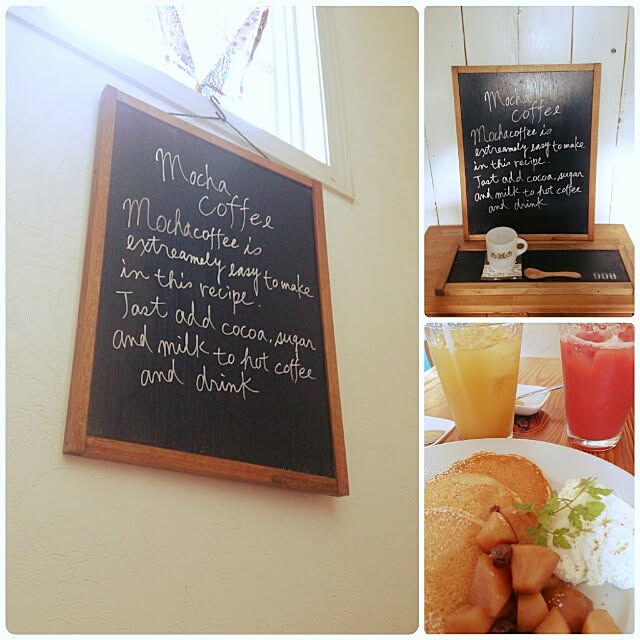 Mocha
Coffee
Mochacoffee is
extreamely easy to make
in this recipe.
Jast add cocoa, sugar
and milk to hot coffee
and drink
Mocha
Coffee
Mochacoffee is
extreamely easy to make
in this recipe.
Jast add cocoa, sugar
and milk to hot coffee
and drink